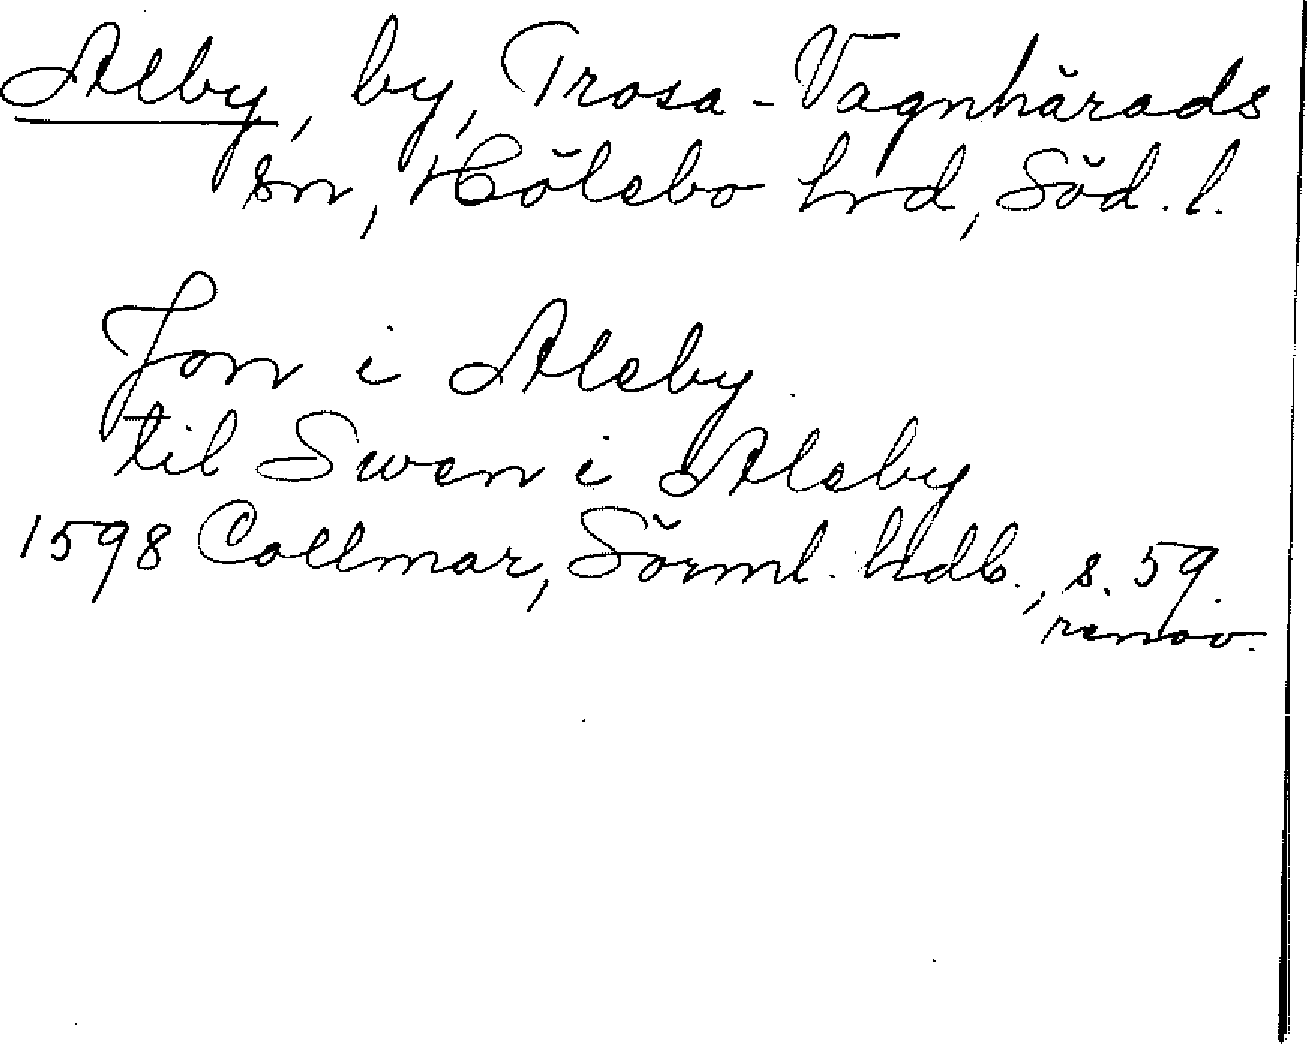 Alby, by, Trosa-Vagnhärads
sn, Hölebo hrd, Söd. l.
Jon i Aleby
til Swen i Aleby
1598 Collmar, Sörml. hdb., s. 59.
renov.